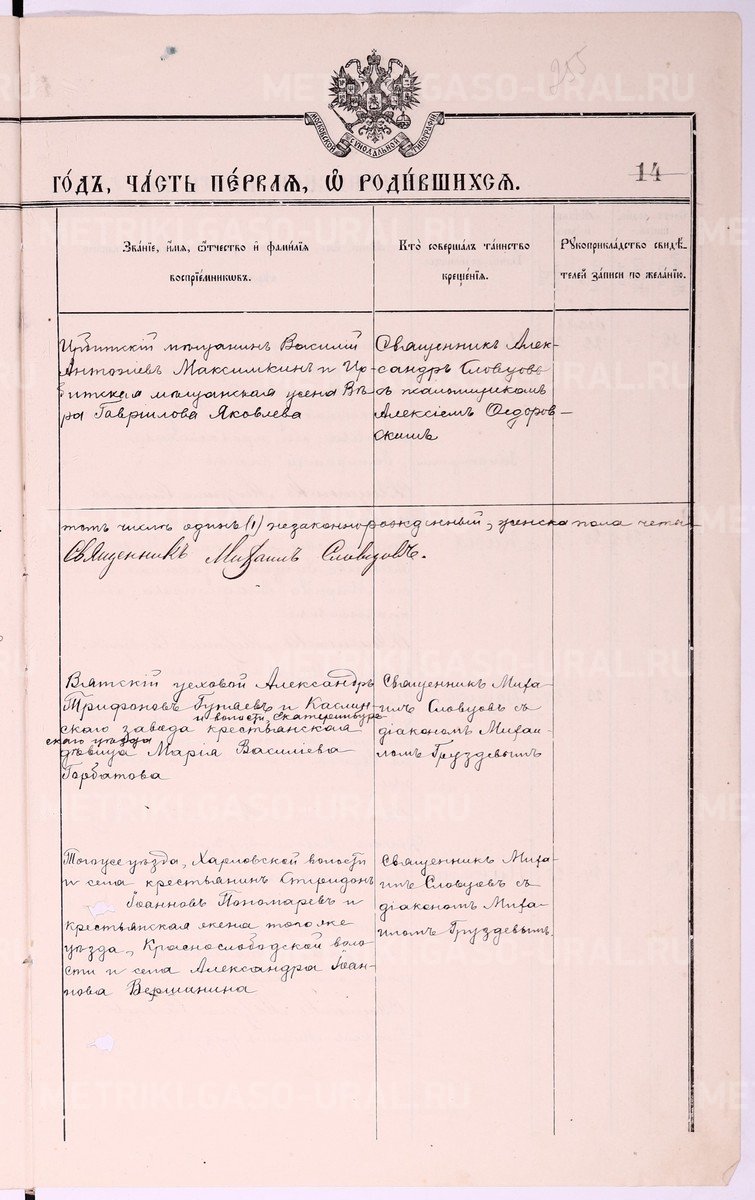 METRIKI.GASO-URAL.RU
255
МОСКОВСКОЙ СѴНОДАЛЬНОЙ ТИПОГРАФІИ
ГО́ДЪ, ЧА́СТЬ ПЕ́РВАЯ, Ѡ РОДИ́ВШИХСЯ.
14
Зва́нїе, и́мя, ѻ҆́тчество и҆ фами́лїя
воспрїе́мникѡвъ.
Кто̀ соверша́лъ та́инство
креще́нїя.
Рꙋкоприкла́дство свидѣ́-
телей за́писи по жела́нїю.
Ирбитскій мѣщанинъ Василій
Антоніевъ Максимкинъ и Ир-
битская мѣщанская жена Вѣ-
ра Гаврилова Яковлева
Священникъ Алек-
сандръ Словцовъ
съ псаломщикомъ
Алексіемъ Ѳедоров-
скимъ
томъ числѣ одинъ (1) незаконнорожденный, женска пола четы
Священникъ Михаилъ Словцовъ.
Вятскій цеховой Александръ
Трифоновъ и Каслин-
скаго завода и волости Екатеринбург-
скаго уѣзда крестьянская
дѣвица Марія Василіева
Горбатова
Священникъ Миха-
илъ Словцовъ съ
діакономъ Михаи-
ломъ Груздевымъ
Тогоже уѣзда, Харловской волости
и села крестьянинъ Спиридонъ
Іоанновъ Пономаревъ и
крестьянская жена тогоже
уѣзда, Краснослободской воло-
сти и села Александра Іоан-
нова Вершинина
Священникъ Миха-
илъ Словцовъ съ
діакономъ Миха-
иломъ Груздевымъ.
METRIKI.GASO-URAL.RU